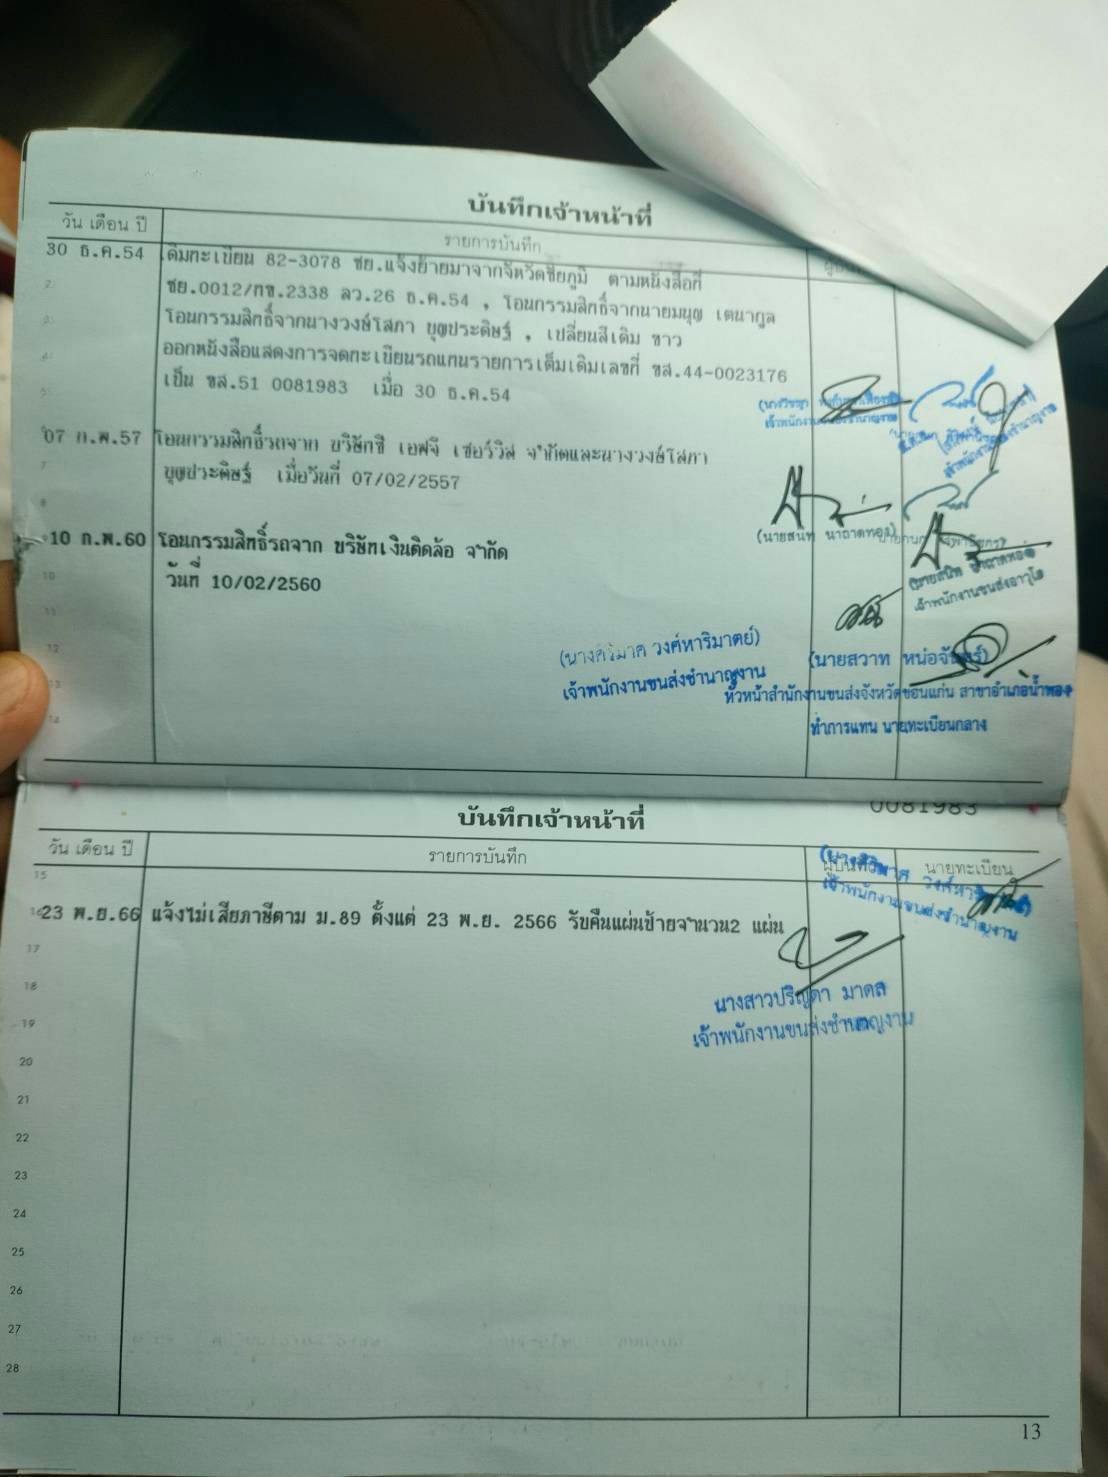 บันทึกเจ้าหน้าที่
วัน เดือน ปี รายการบันทึก
30 ธ.ค.54 เดิมทะเบียน 82-3078 ชย.แจ้งย้ายมาจากจังหวัดชัยภูมิ ตามหนังสือที่
2 ชย.0012/ทข.2338 ลว.26 ธ.ค.54 , โอนกรรมสิทธิ์จากนายมนุญ เตนากูล
3 โอนกรรมสิทธิ์จากนางวงษ์โสภา บุญประดิษฐ์ , เปลี่ยนสีเดิม ขาว
4 ออกหนังสือแสดงการจดทะเบียนรถแทนรายการเต็มเดิมเลขที่ ขส.44-0023176
5 เป็น ขส.51 0081983 เมื่อ 30 ธ.ค.54
07 ก.พ.57 โอนกรรมสิทธิ์รถจาก บริษัทซี เอฟจี เซอร์วิส จำกัดและนางวงษ์โสภา
7 บุญประดิษฐ์ เมื่อวันที่ 07/02/2557
8
(นายสนิท นาถาดทอง)
10 ก.พ.60 โอนกรรมสิทธิ์รถจาก บริษัทเงินติดล้อ จำกัด
10 วันที่ 10/02/2560
เจ้าพนักงานขนส่งอาวุโส
11
12 วงศ์หาริมาตย์) (นายสวาท หน่อจันทร์)
13 เจ้าพนักงานขนส่งชำนาญงาน หัวหน้าสำนักงานขนส่งจังหวัดขอนแก่น สาขาอำเภอน้ำพอง
14 ทำการแทน นายทะเบียนกลาง
0081983
บันทึกเจ้าหน้าที่
วัน เดือน ปี รายการบันทึก ผู้บันทึก นายทะเบียน
15
เจ้าพนักงานขนส่งชำนาญงาน
16 23 พ.ย.66 แจ้งไม่เสียภาษีตาม ม.89 ตั้งแต่ 23 พ.ย. 2566 รับคืนแผ่นป้ายจำนวน2 แผ่น
17
18 นางสาวปริญดา มาดส
19 เจ้าพนักงานขนส่งชำนาญงาน
20
21
22
23
24
25
26
27
28
13